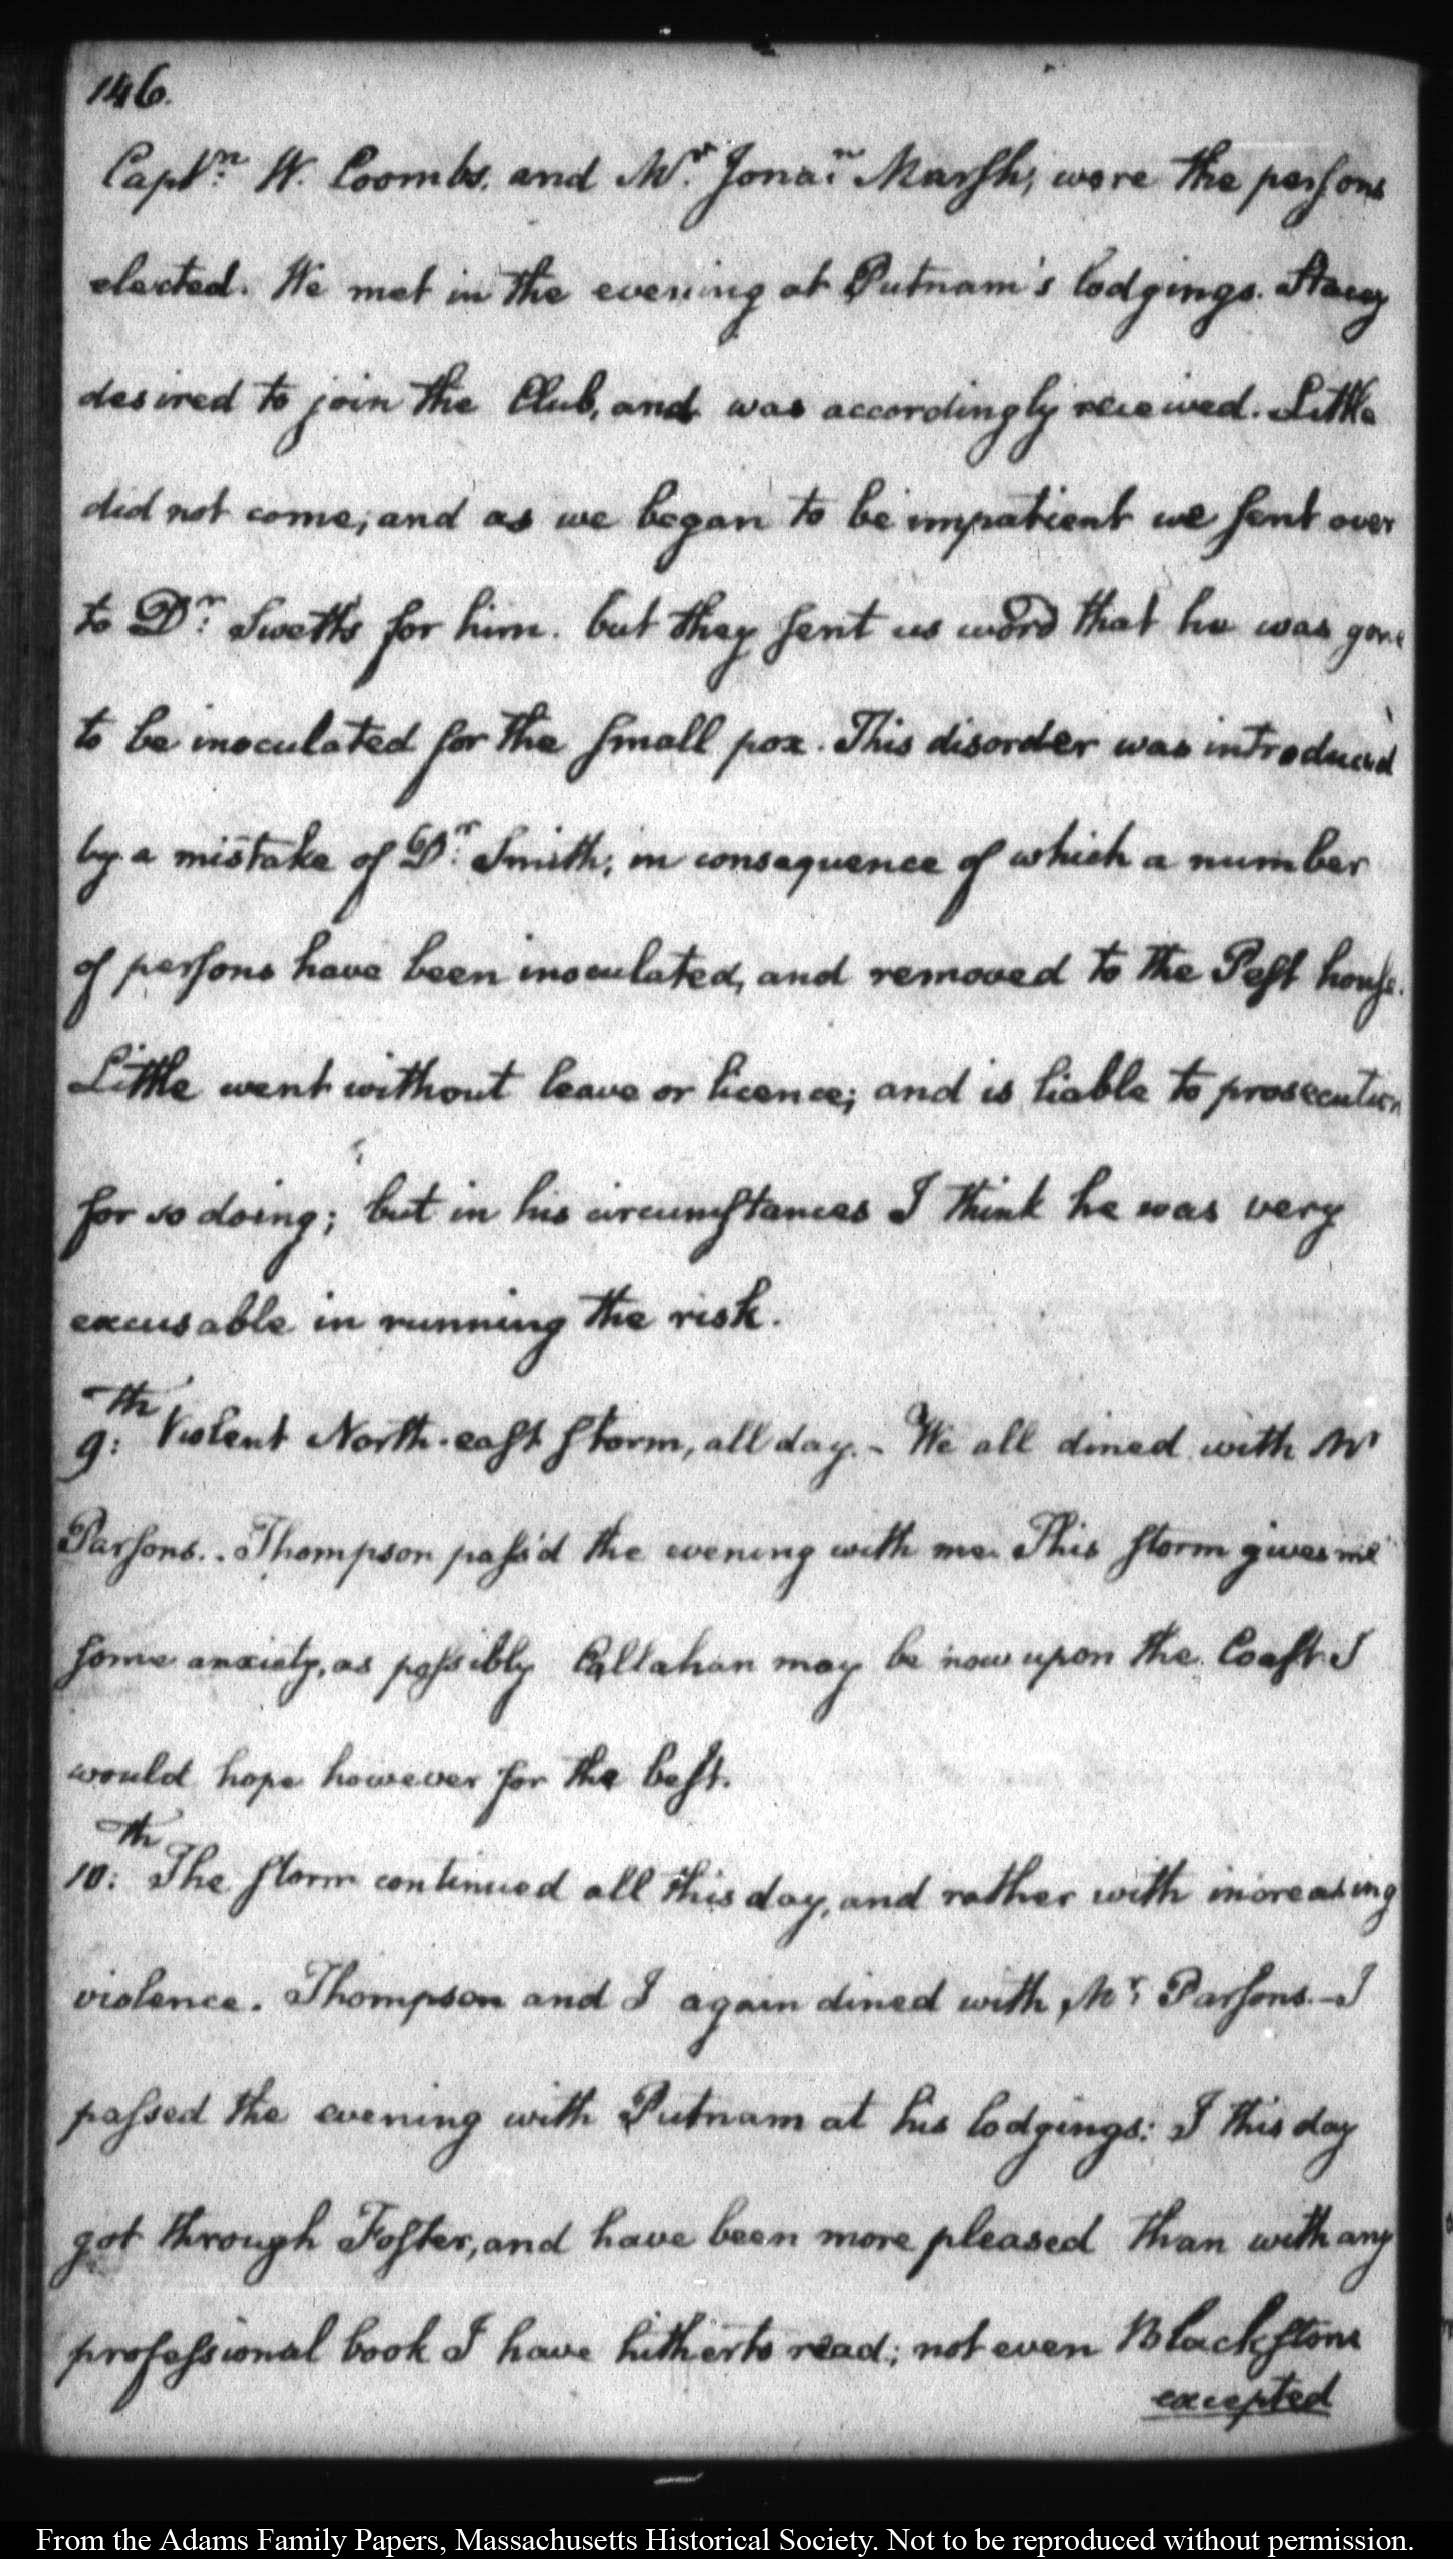 146.
Captn: W. Coombs, and Mr. Jonan: Marsh, were the persons
elected. We met in the evening at Putnam's lodgings. Stacey
desired to join the Club, and was accordingly received. Little
did not come; and as we began to be impatient we sent over
to Dr: Swetts for him. but they sent us word that he was gone
to be inoculated for the small pox. This disorder was introduced
by a mistake of Dr: Smith; in consequence of which a number
of persons have been inoculated, and removed to the Pest house.
Little went without leave or licence; and is liable to prosecution
for so doing; but in his circumstances I think he was very
excusable in running the risk.
9:th Violent North-east storm, all day. - We all dined with Mr
Parsons.. Thompson pass'd the evening with me. This storm gives me
some anxiety, as possibly Callahan may be now upon the Coast. I
would hope however for the best.
10:th The storm continued all this day, and rather with increasing
violence. Thompson and I again dined with Mr: Parsons.—I
passed the evening with Putnam at his lodgings: I this day
got through Foster, and have been more pleased than with any
professional book I have hitherto read; not even Blackstone
excepted
From the Adams Family Papers, Massachusetts Historical Society. Not to be reproduced without permission.